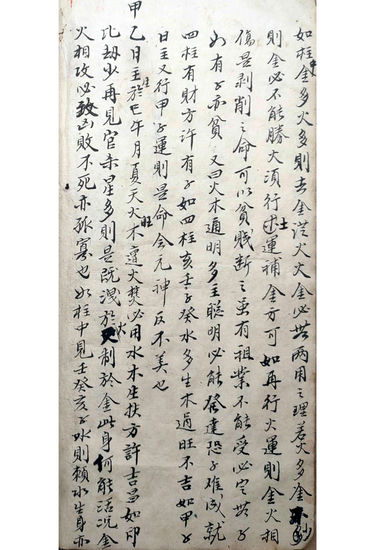 如柱中金多火多則去金從火火金必無兩用之理若火多金少
則金必不能勝火須行土運補金方可如再行火運則金火相
傷是剥削之命可以貧賤斷之虽有祖業不能受必定無子
如有子亦貧 又曰火木通明多主聰明必能發達恐子难成就
四柱有財方許有子如四柱亥壬子癸水多生木過旺不吉如甲子
日主又行甲子運則是命会元神反不美也
甲乙日主於巳午月夏天火旺木遭火焚必用水木生扶方許吉若如印
比劫少再見官未星多則是既洩於火制於金此身何能活况金
火相攻必致凶敗不死亦孤寡也如柱中見壬癸亥子水則賴水生身亦